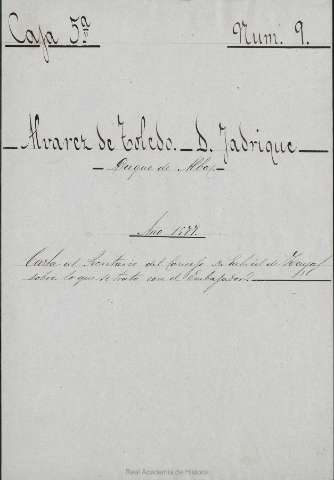 Caja 5ª Num. 9.
Alvarez de Toledo. D. Fadrique
Duque de Alba.
Año 1577.
Carta al Secretario del Consejo Gabriel de Zayas
sobre lo que se trató con el Embajador.
Real Academia de Historia